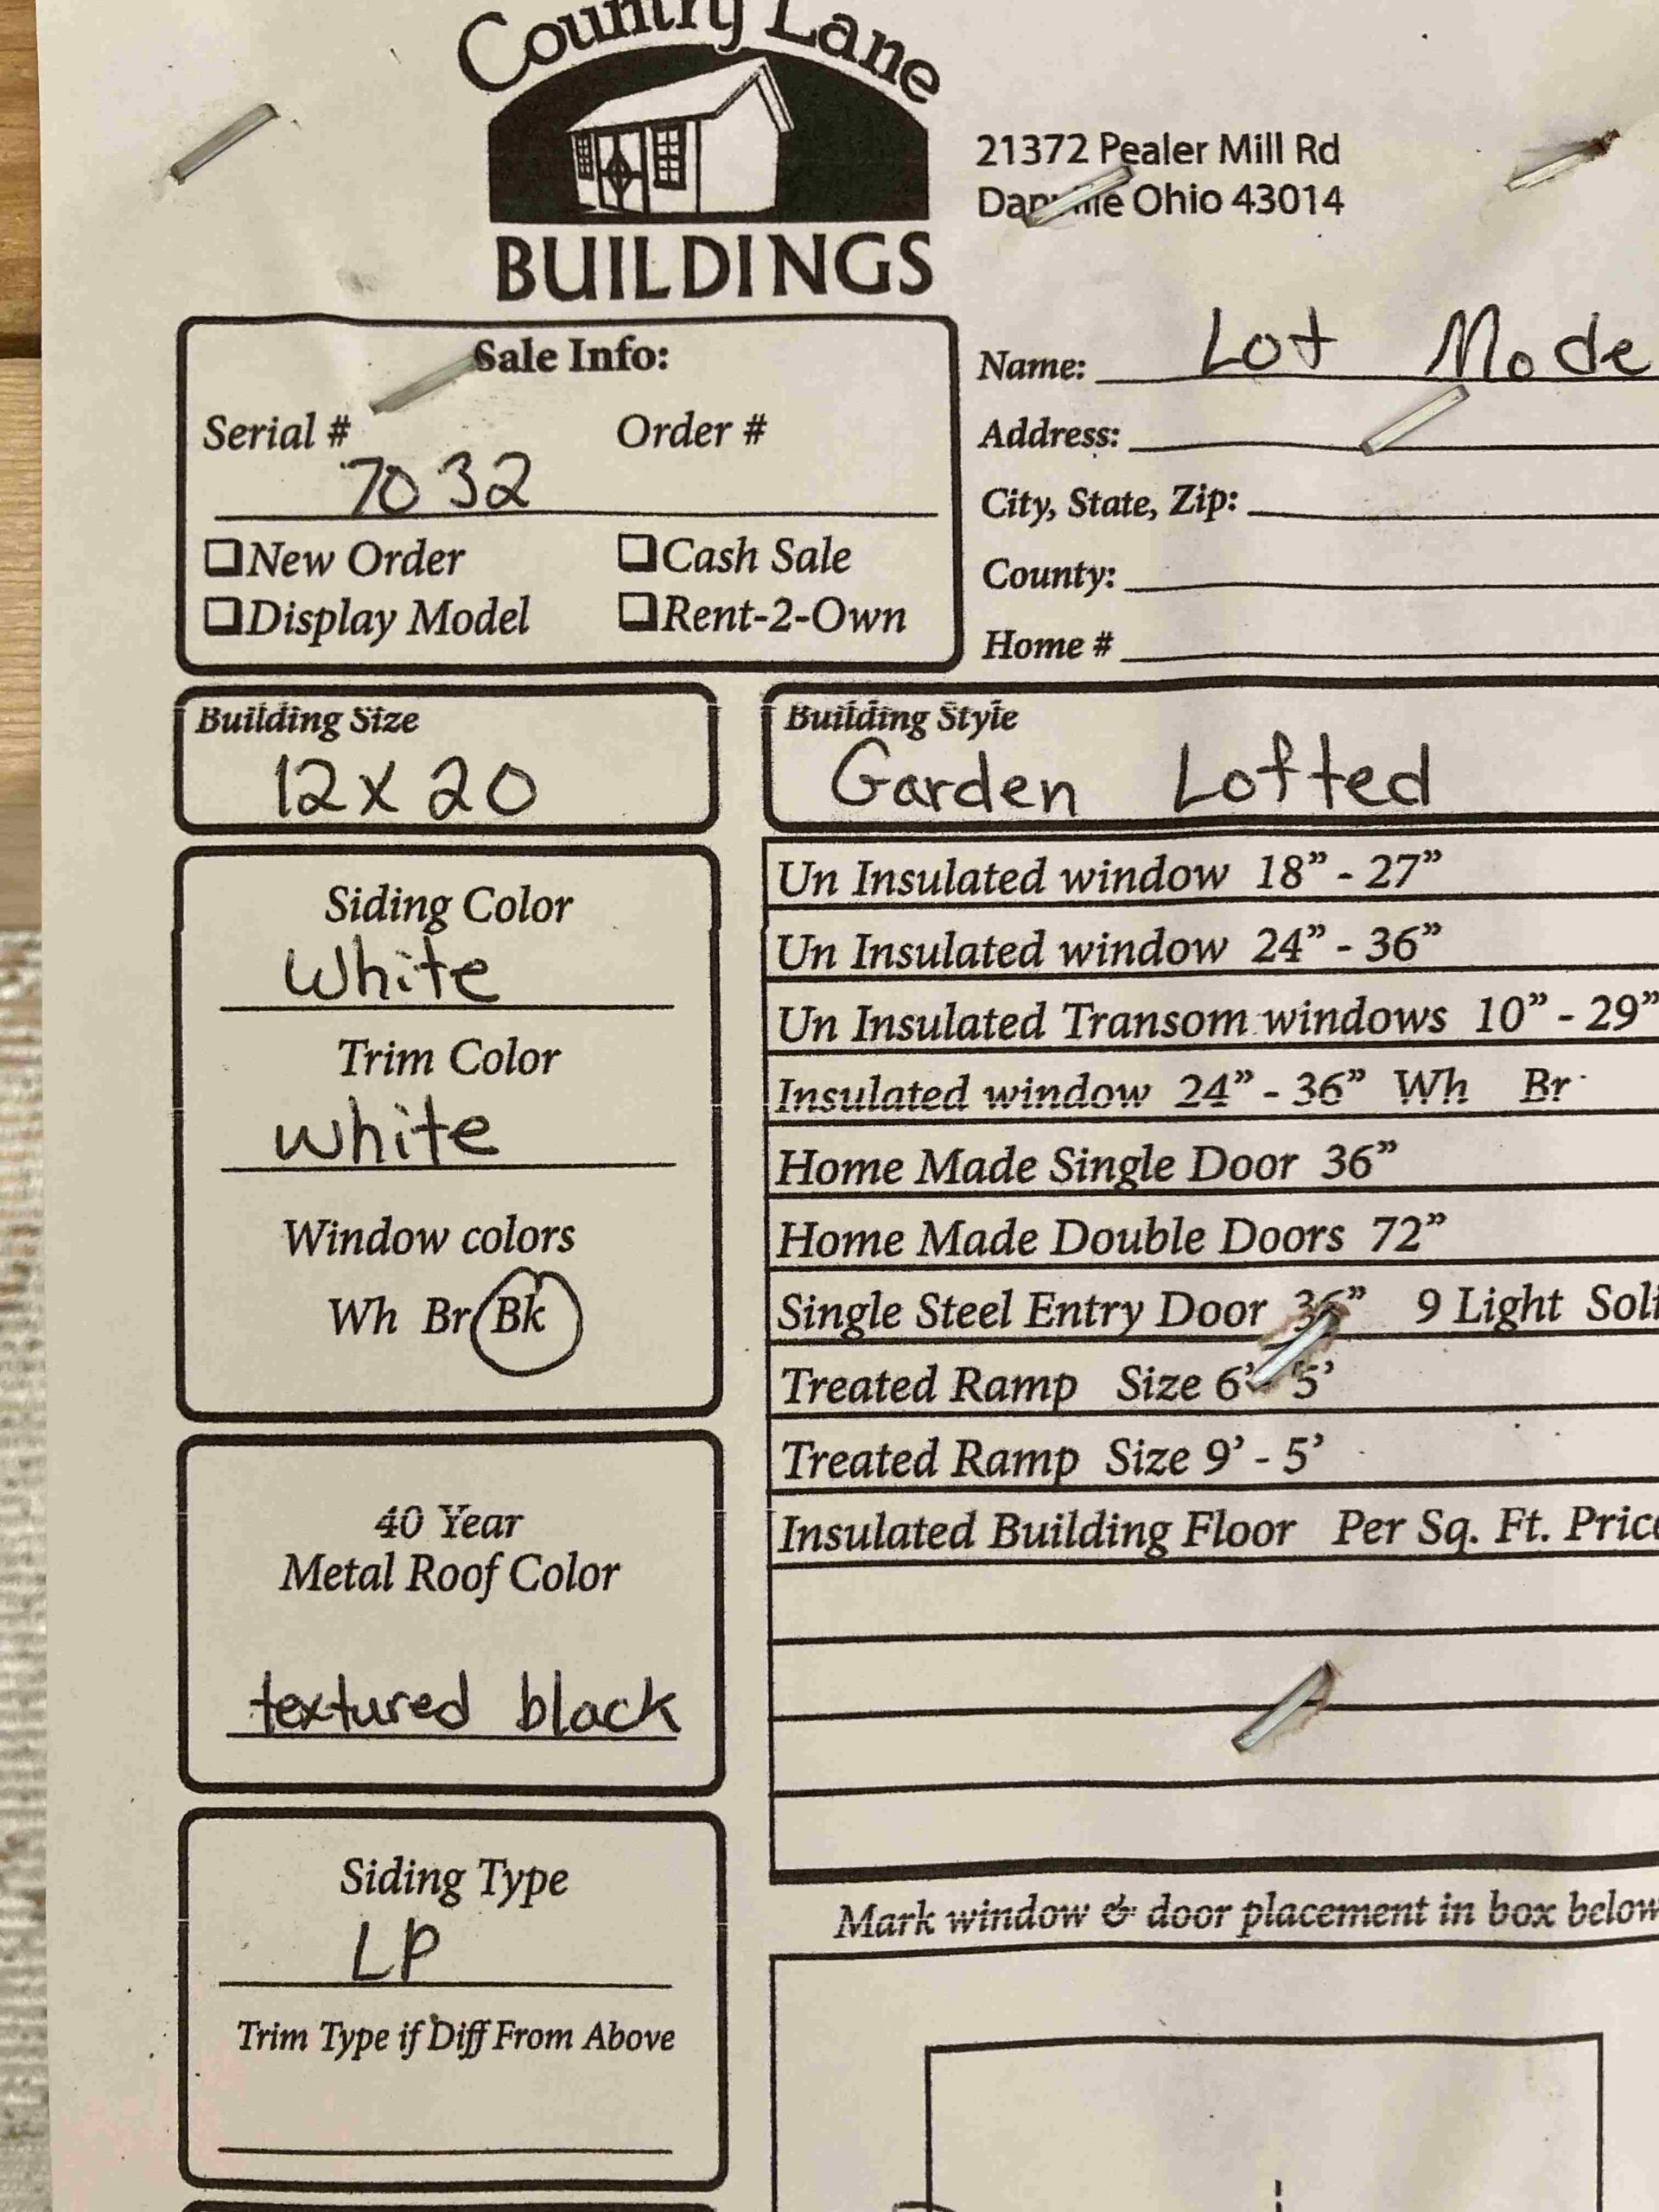 Country Lane
BUILDINGS
21372 Pealer Mill Rd
Danville Ohio 43014
Sale Info:
Serial # Order #
7032
❑New Order ❑Cash Sale
❑Display Model ❑Rent-2-Own
Name: Lot Mode
Address:
City, State, Zip:
County:
Home #
Building Size
12 x 20
Building Style
Garden Lofted
Siding Color
White
Trim Color
white
Window colors
Wh Br Bk
40 Year
Metal Roof Color
textured black
Siding Type
LP
Trim Type if Diff From Above
Un Insulated window 18” - 27”
Un Insulated window 24” - 36”
Un Insulated Transom windows 10” - 29”
Insulated window 24” - 36” Wh Br
Home Made Single Door 36”
Home Made Double Doors 72”
Single Steel Entry Door 36” 9 Light Soli
Treated Ramp Size 6’ - 5’
Treated Ramp Size 9’ - 5’
Insulated Building Floor Per Sq. Ft. Price
Mark window & door placement in box below